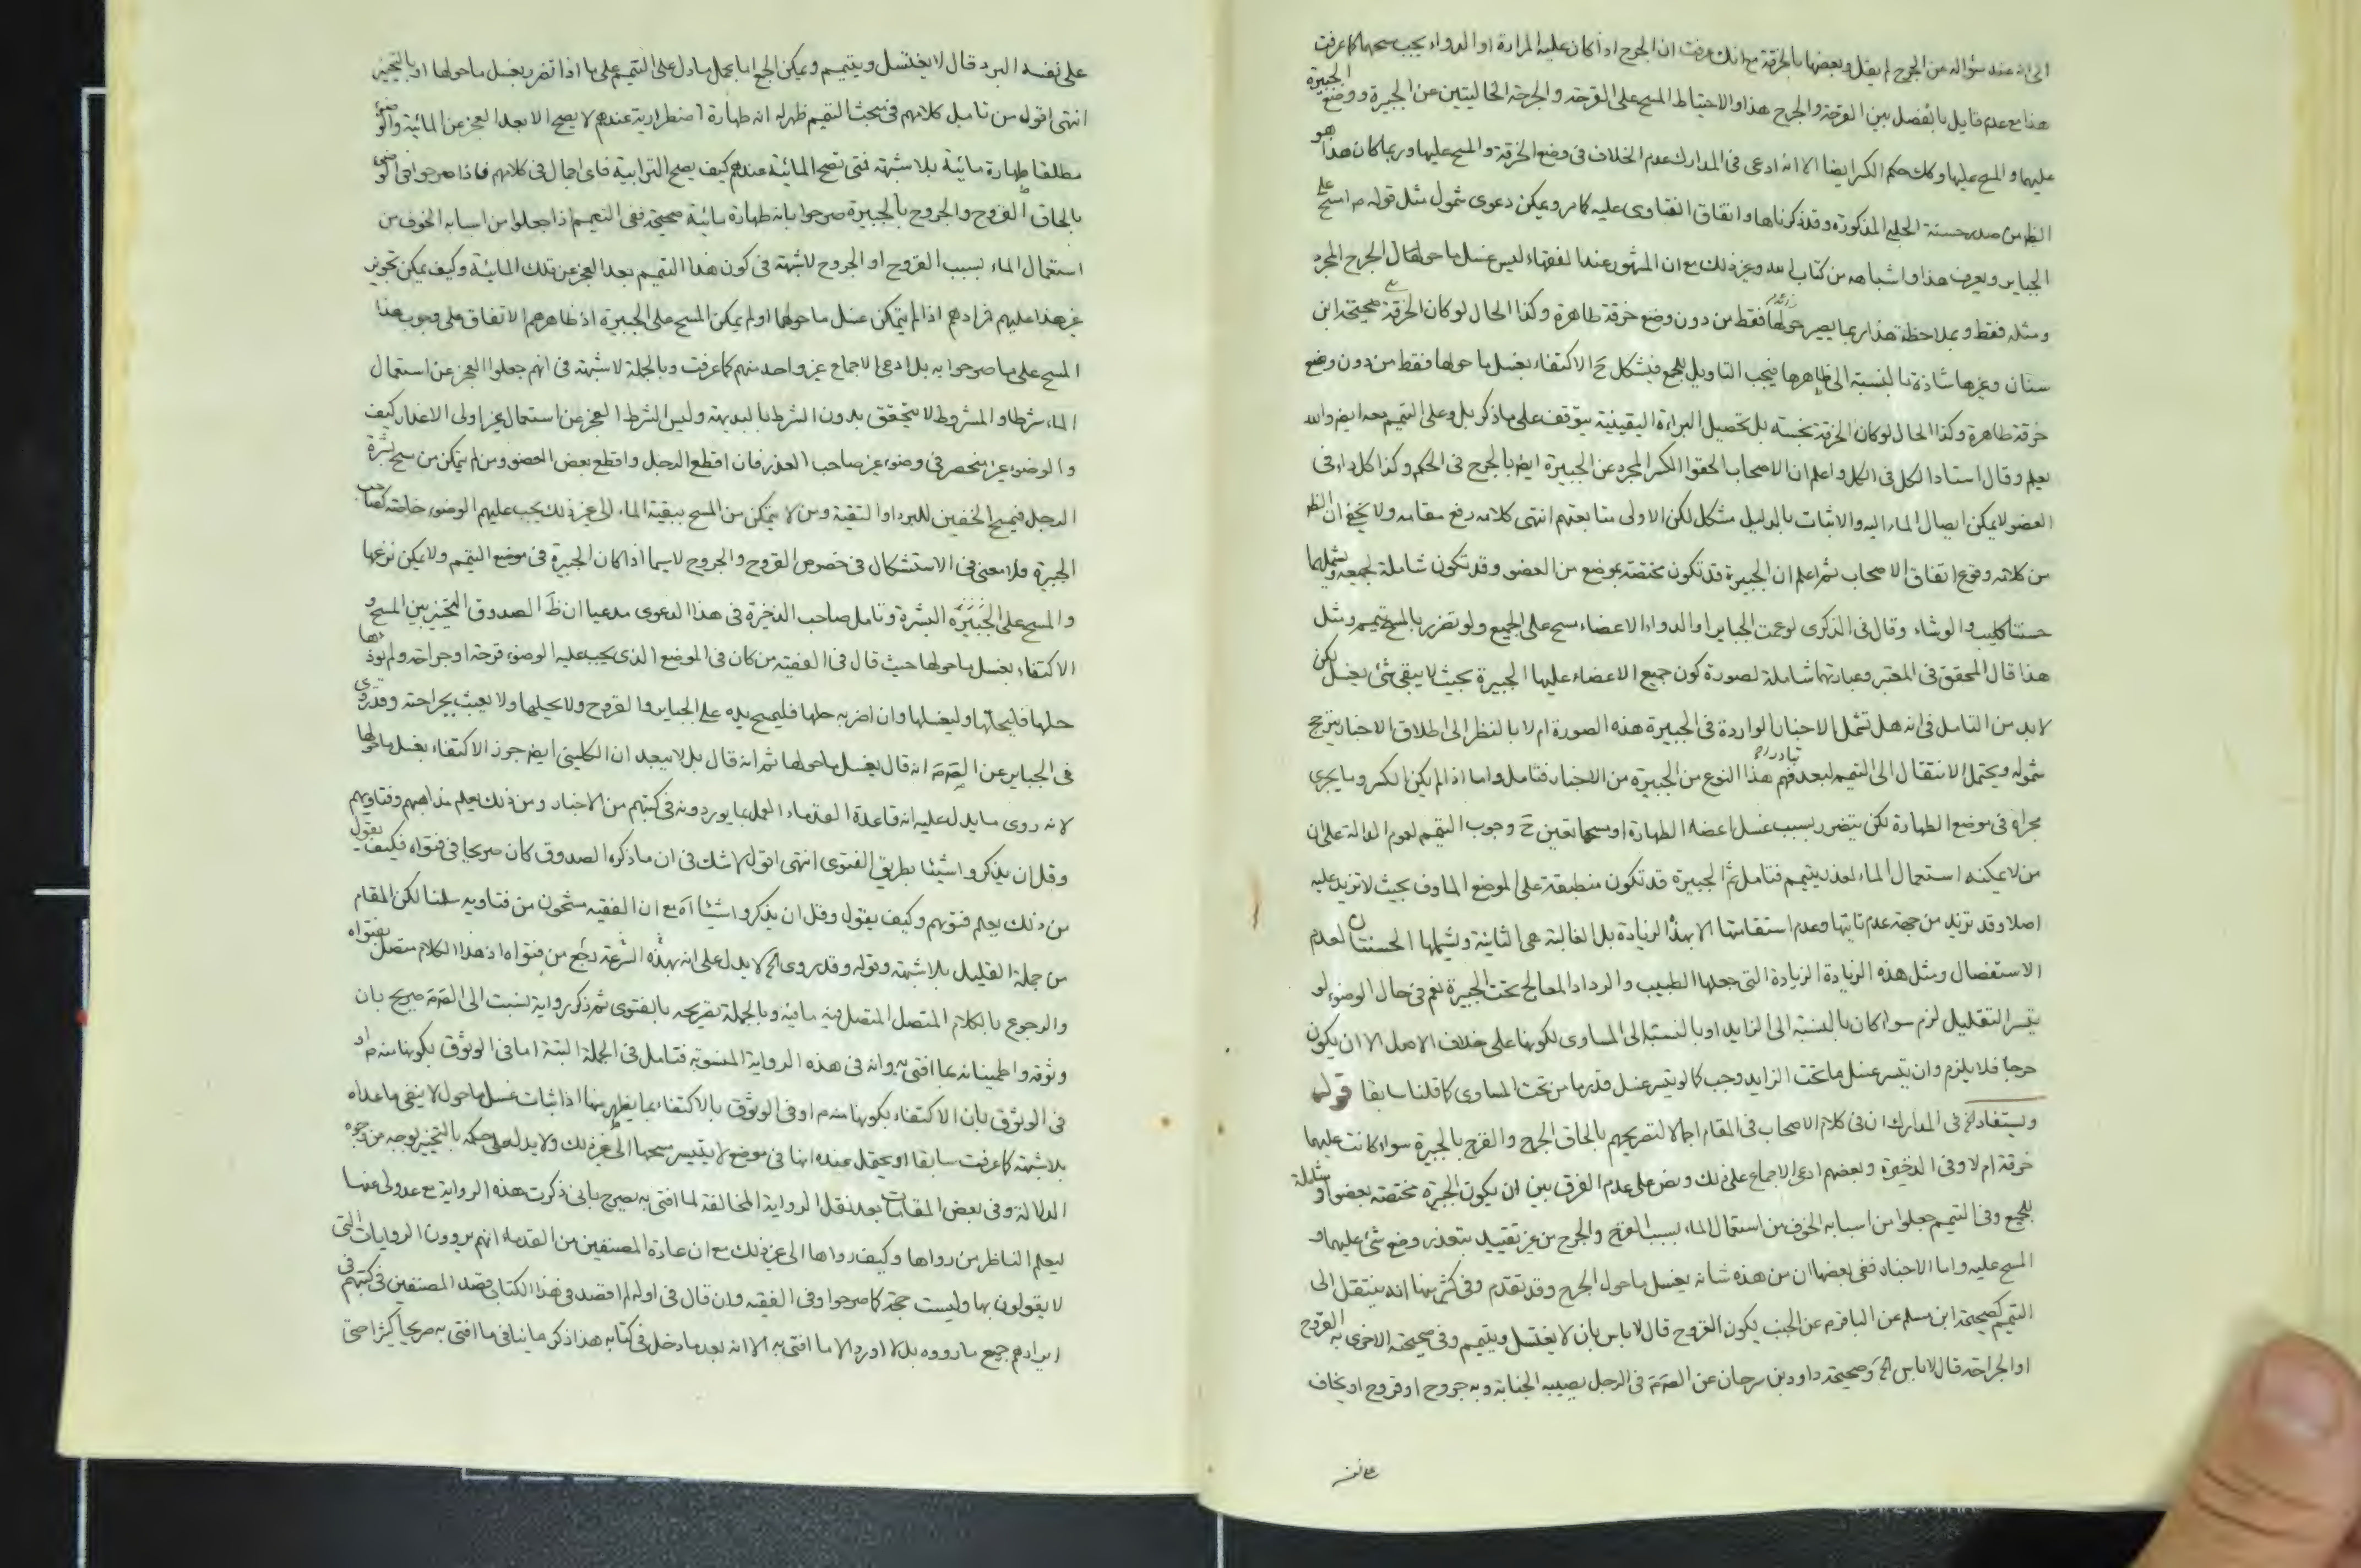 الى انه عند سؤاله عن الجرح لم يقل وبعضها بالخرقة مع انك عرفت ان الجرح اذا كان عليه المرارة او الدواء يجب مسحهما كما عرفت
هذا مع عدم قايل بالفصل بين القرحة والجرح هذا والاحتياط المسح على القرحة والجرحة الخاليتين عن الجبيرة ووضع الجبيرة
عليهما والمسح عليها وكك حكم الكسر ايضا الا انه ادعى فى المدارك عدم الخلاف فى وضع الخرقة والمسح عليها وربما كان هذا هو
الظ من صدر حسنة الحلبى المذكورة وقد ذكرناها واتفاق الفتاوى عليه كما مر ويمكن دعوى شمول مثل قوله م امسح على
الجباير ويعرف هذا واشباهه من كتاب الله وغير ذلك مع ان المشهور عند الفقهاء ليس غسل ما حولها ال الجرح المجرد
ومثله فقط وبملاحظة هذا ربما يصير حولها فقط من دون وضع خرقة طاهرة وكذا الحال لو كان الخرقة صحيحة ابن
سنان وغيرها شاذة بالنسبة الى ظاهرها فيجب التاويل للجمع فيشكل ح الاكتفاء بغسل ما حولها فقط من دون وضع
خرقة طاهرة وكذا الحال لو كان الخرقة نجسة بل تحصيل البراءة اليقينية يتوقف على ما ذكر بل وعلى التيمم بعد ايض والله
يعلم وقال استاد الكل فى الكل واعلم ان الاصحاب الحقوا الكسر المجرد عن الجبيرة ايض بالجرح فى الحكم وكذا كل داء فى
العضو لا يمكن ايصال الماء اليه والاثبات بالدليل مشكل لكن الاولى متابعتهم انتهى كلامه رفع مقامه ولا يخفى ان الظ
من كلامه وقوع اتفاق الاصحاب ثم اعلم ان الجبيرة قد تكون مختصة بموضع من العضو وقد تكون شاملة لجميعه ويشملها
حسنتا كليب والوشاء وقال فى الذكرى لو عمت الجباير او الدواء الاعضاء مسح على الجميع ولو تضرر بالمسح تيمم ومثل
هذا قال المحقق فى المعتبر وعبارتهما شاملة لصورة كون جميع الاعضاء عليها الجبيرة بحيث لا يبقى شئ يغسل لكن
لا بد من التامل فى انه هل تشمل الاخبار الواردة فى الجبيرة هذه الصورة ام لا بالنظر الى اطلاق الاخبار يترجح
شموله ويحتمل الانتقال الى التيمم لبعد فهم هذا النوع من الجبيرة من الاخبار فتامل واما اذا لم يكن الكسر وما يجرى
مجراه فى موضع الطهارة لكن يتضرر بسبب غسل اعضاء الطهارة او مسحها تعين ح وجوب التيمم لعموم الدالة على ان
من لا يمكنه استعمال الماء لعذر يتيمم فتامل ثم الجبيرة قد تكون منطبقة على الموضع الماوف بحيث لا تزيد عليه
اصلا وقد تزيد من جهة عدم تاتيها وعدم استقامتها الا بهذه الزيادة بل الغالبة هى الثانية ويشملها الحسنتان لعدم
الاستفصال ومثل هذه الزيادة الزيادة التى جعلها الطبيب والرداد المعالج تحت الجبيرة نعم فى حال الوضوء لو
يتيسر التقليل لزم سواء كان بالنسبة الى الزايد او بالنسبة الى المساوى لكونها على خلاف الاصل الا ان يكون
حرجا فلا يلزم وان يتيسر غسل ما تحت الزايد وجب كما لو يتيسر غسل قدر ما من تحت المساوى كما قلنا سابقا قوله
ويستفاد الخ فى المدارك ان فى كلام الاصحاب فى المقام اجمالا لتصريحهم بالحاق الجرح والقرح بالجبيرة سواء كانت عليهما
خرقة ام لا وفى الذخيرة وبعضهم ادعى الاجماع على ذلك ونص على عدم الفرق بين ان يكون الجبيرة مختصة بعضو او شاملة
للجميع وفى التيمم جعلوا من اسبابه الخوف من استعمال الماء بسبب القرح والجرح من غير تقييد بتعذر وضع شئ عليهما و
المسح عليه واما الاخبار ففى بعضها ان من هذه شانه يغسل ما حول الجرح وقد تقدم وفى كثير منها انه ينتقل الى
التيمم كصحيحة ابن مسلم عن الباقر م عن الجنب يكون القروح قال لا باس بان لا يغتسل ويتيمم وفى صحيحته الاخرى به القروح
او الجراحة قال لا باس الخ وصحيحة داود بن سرحان عن الصم فى الرجل يصيبه الجنابة وبه جروح او قروح او يخاف
على نفسه
على نفسه البرد قال لا يغتسل ويتيمم ويمكن الجمع اما بحمل ما دل على التيمم على ما اذا تضرر بغسل ما حولها او بالتخيير
انتهى اقول من تامل كلامهم فى مبحث التيمم ظهر له انه طهارة اضطرارية عندهم لا يصح الا بعد العجز عن المائية والوضوء
مطلقا طهارة مائية بلا شبهة فتى تصح المائية عندهم كيف يصح الترابية فاى اجمال فى كلامهم فاذا صرحوا فى الوضوء
بالحاق القروح والجروح بالجبيرة صرحوا بانه طهارة مائية صحيحة ففى التيمم اذا جعلوا من اسبابه الخوف من
استعمال الماء بسبب القروح او الجروح لا شبهة فى كون هذا التيمم بعد العجز عن تلك المائية وكيف يمكن تجويز
غير هذا عليهم فمرادهم اذا لم يتمكن غسل ما حولها او لم يمكن المسح على الجبيرة اذ ظاهرهم الاتفاق على وجوب هذا
المسح على ما صرحوا به بل ادعى الاجماع غير واحد منهم كما عرفت وبالجملة لا شبهة فى انهم جعلوا العجز عن استعمال
الماء شرطا والمشروط لا يتحقق بدون الشرط بالبديهة وليس الشرط العجز عن استعمال غير اولى الاعذار كيف
والوضوء غير منحصر فى وضوء غير صاحب العذر فان اقطع الرجل واقطع بعض العضو ومن لم يتمكن من مسح بشرة
الرجل فيمسح الخفين للبرد او التقية ومن لا يتمكن من المسح ببقية الماء الى غير ذلك يجب عليهم الوضوء خاصة كصاحب
الجبيرة فلا معنى فى الاستشكال فى خصوص القروح والجروح لا سيما اذا كان الجبيرة فى موضع التيمم ولا يمكن نزعها
والمسح على الجبيرة البشرة وتامل صاحب الذخيرة فى هذا الدعوى مدعيا ان ظ الصدوق التخيير بين المسح و
الاكتفاء بغسل ما حولها حيث قال فى الفقيه من كان فى الموضع الذى يجب عليه الوضوء قرحة او جراحة ولم يوذها
حلها فليحلها وليغسلها وان اضر به حلها فليمسح يده على الجباير والقروح ولا يحلها ولا يعبث بجراحته وقد روى
فى الجباير عن الصم انه قال يغسل ما حولها ثم انه قال بل لا يبعد ان الكلينى ايض جوز الاكتفاء بغسل ما حولها
لانه روى ما يدل عليه انه قاعدة القدماء العمل بما يوردونه فى كتبهم من الاخبار ومن ذلك يعلم مذاهبهم وفتاويهم
وقل ان يذكروا شيئا بطريق الفتوى انتهى اقول لا شك فى ان ما ذكره الصدوق كان صريحا فى فتواه فكيف يقول
من ذلك يعلم فتوهم وكيف يقول وقل ان يذكروا شيئا اه مع ان الفقيه مشحون من فتاويه سلمنا لكن المقام
من جملة القليل بلا شبهة وقوله وقد روى الخ لا يدل على انه بهذه السرعة رجع من فتواه اذ هذا الكلام متصل بفتواه
والرجوع بالكلام المتصل المتصل فيه مافيه وبالجملة تصريحه بالفتوى ثم ذكر رواية نسبت الى الصم صريح بان
وثوقه واطمينانه بما افتى به وانه فى هذه الرواية المنسوبة فتامل فى الجملة البتة اما فى الوثوق بكونها منه م او
فى الوثوق بان الاكتفاء بكونها منه م او فى الوثوق بالاكتفاء بما يظهر منها اذ اثبات غسل ما حول لا ينفى ما عداه
بلا شبهة كما عرفت سابقا او يحتمل عنده انها فى موضع لا يتيسر مسحها الى غير ذلك ولا يدل على حكمه بالتخيير بوجه من وجوه
الدلالة وفى بعض المقامات بعد نقل الرواية المخالفة لما افتى به يصرح بانى ذكرت هذه الرواية مع عدولى عنها
ليعلم الناظر من رواها وكيف رواها الى غير ذلك مع ان عادة المصنفين من القدماء انهم يروون الروايات التى
لا يقولون بها وليست حجة كما صرحوا وفى الفقيه وان قال فى اوله لم اقصد فى هذا الكتاب قصد المصنفين فى كتبهم فى
ايرادهم جميع ما رووه بل لا اورد الا ما افتى به الا انه بعد ما دخل فى كتابه هذا ذكر ما ينافى ما افتى به صريحا كثيرا حتى